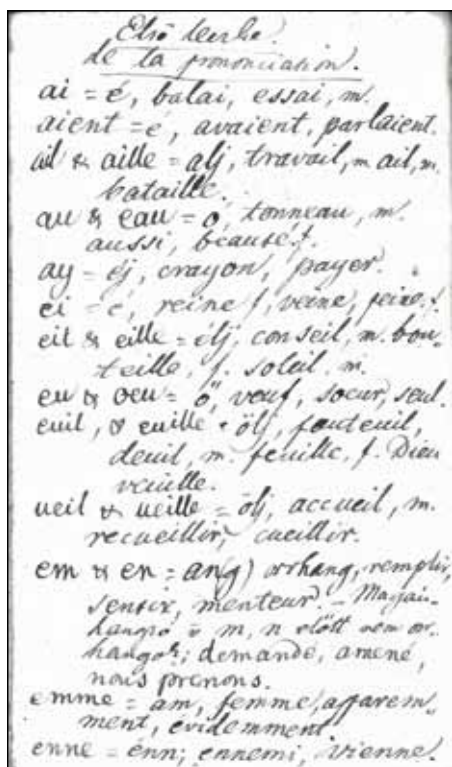 Első lecke.
de la prononciation.
ai = é, balai, essai, m.
aient = é, avaient, parlaient.
ail & aille = alj, travail, m ail, m.
bataille.
au & eau = o, tonneau, m.
aussi, beauté f.
ay = éj, crayon, payer.
ei = é, reine f, veine, peine, f.
eil & eille = élj, conseil, m. bou-
teille, f. soleil, m.
eu & oeu = ö, veuf, soeur, seul.
euil, & euille = ölj, fauteuil,
deuil, m. feuille, f. Dieu
veuille.
ueil & ueille = ölj, accueil, m.
recueillir, cueillir.
em & en = an(g) orrhang, remplir,
sentir, menteur. –
hangzó = m, n előtt nem or.
hangok; demande, amené,
nous prenons.
emme = am, femme, apparem-
ment, évidemment
enne = énn; ennemi, vienne.